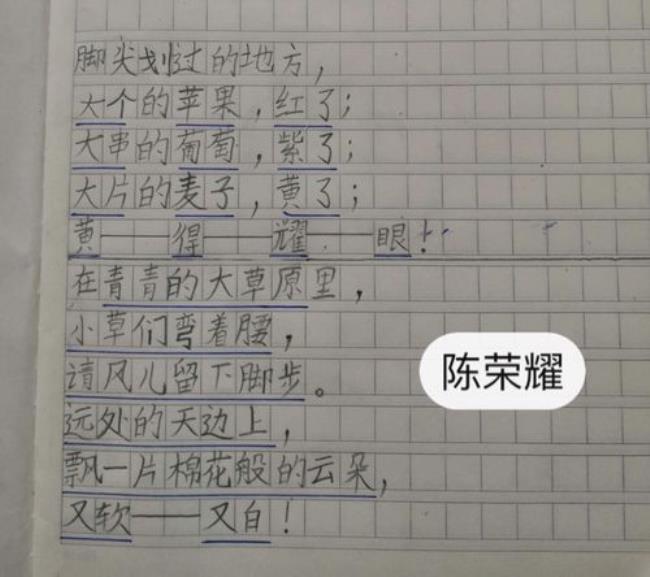 脚尖划过的地方，
大个的苹果，红了；
大串的葡萄，紫了；
大片的麦子，黄了；
黄——得——耀——眼！
在青青的大草原里，
小草们弯着腰，
请风儿留下脚步。
陈荣耀
远处的天边上，
飘一片棉花般的云朵，
又软——又白！